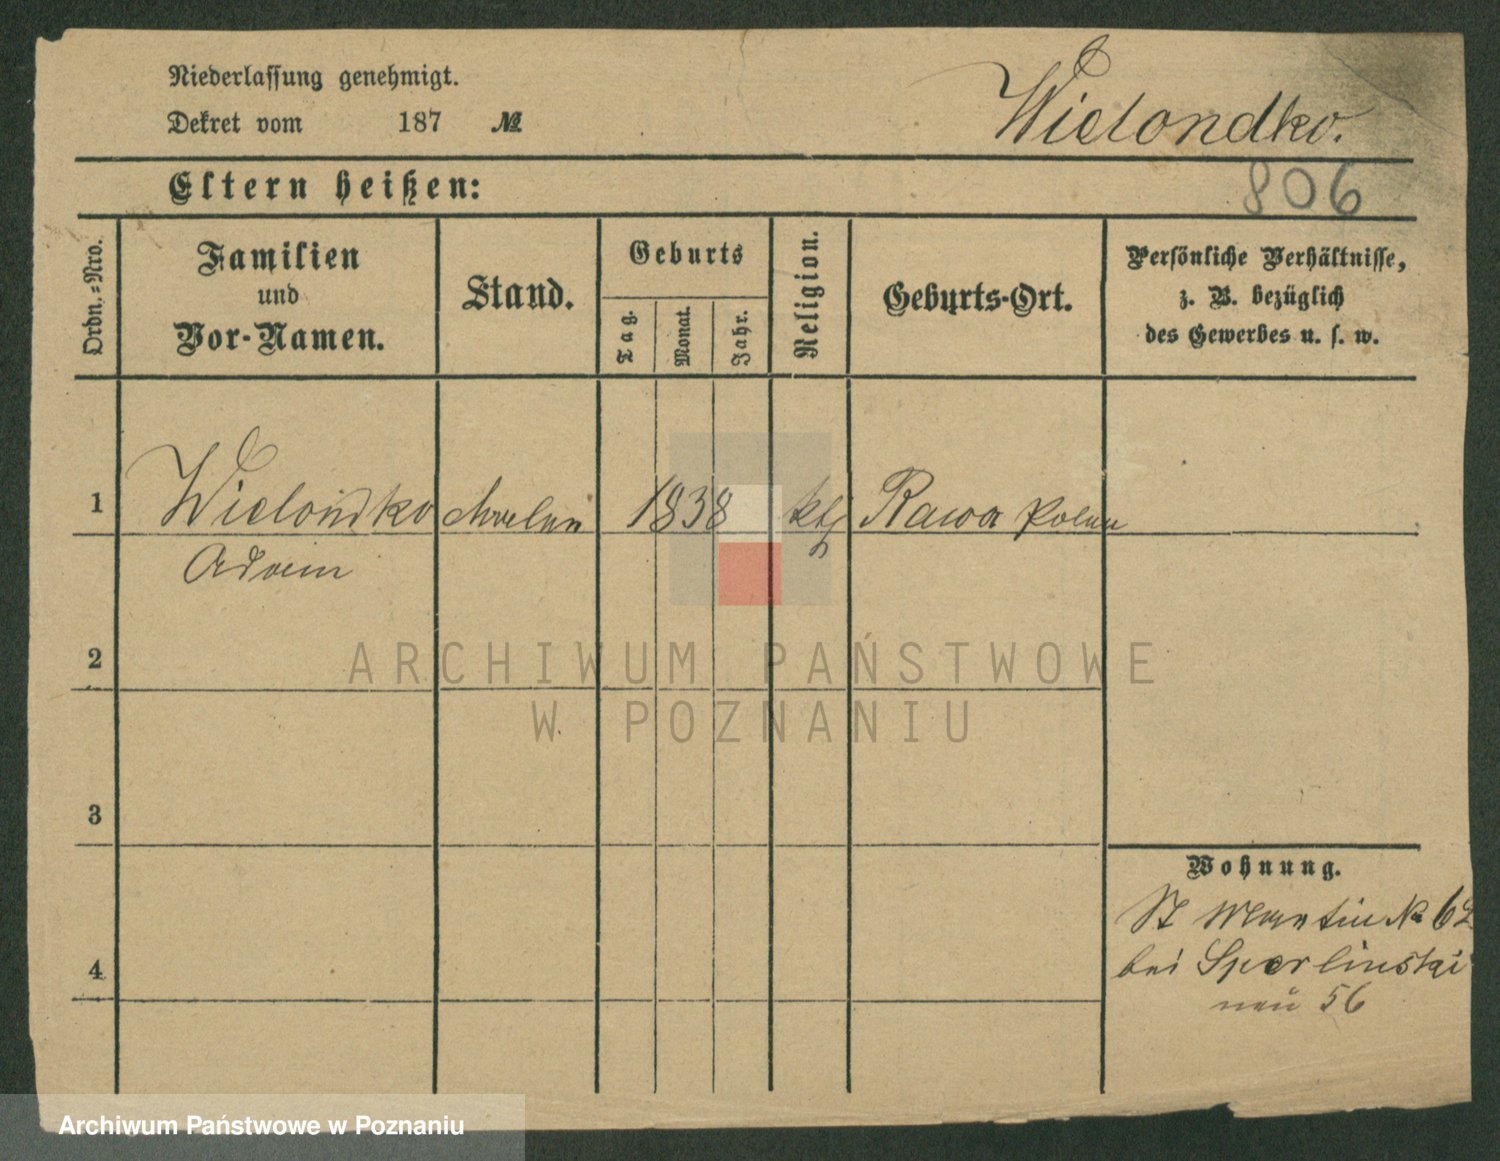 Niederlassung genehmigt.
Dekret vom 187 №
Wielondko.
Eltern heißen:
806
Ordn.-Nro.
Familien
und
Vor-Namen.
Stand.
Geburts
Tag.
Monat.
Jahr.
Religion.
Geburts-Ort.
Persönliche Verhältnisse,
z. B. bezüglich
des Gewerbes u. s. w.
1 Wielondko 1838 kth Rawa Polen
Adam
2
3
4
Wohnung.
St Martin No 62
bei Sperlinski
neu 56
ARCHIWUM PAŃSTWOWE
W POZNANIU
Archiwum Państwowe w Poznaniu